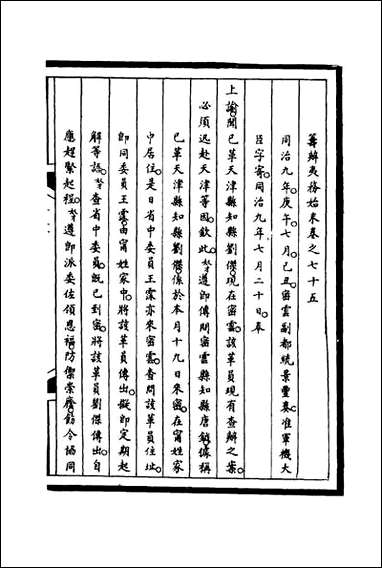 籌辦夷務始末卷之七十五
同治九年庚午七月己丑密雲副都統景豐奏准軍機大
臣字寄同治九年七月二十日奉
上諭聞已革天津縣知縣劉傑現在密雲該革員現有查辦之案
必須迅赴天津等因欽此奴才遵即傳問密雲縣知縣唐據稱
已革天津縣知縣劉傑係於本月十九日來密在甯姓家
中居住是日省中委員王霖亦來密雲查問該革員住址
即同委員王霖由甯姓家中將該革員傳出擬即定期起
解等語奴才查省中委員既已到密將該革員劉傑傳出自
應趕緊起程奴才遵即派委佐領恩福防禦崇齋飭令協同